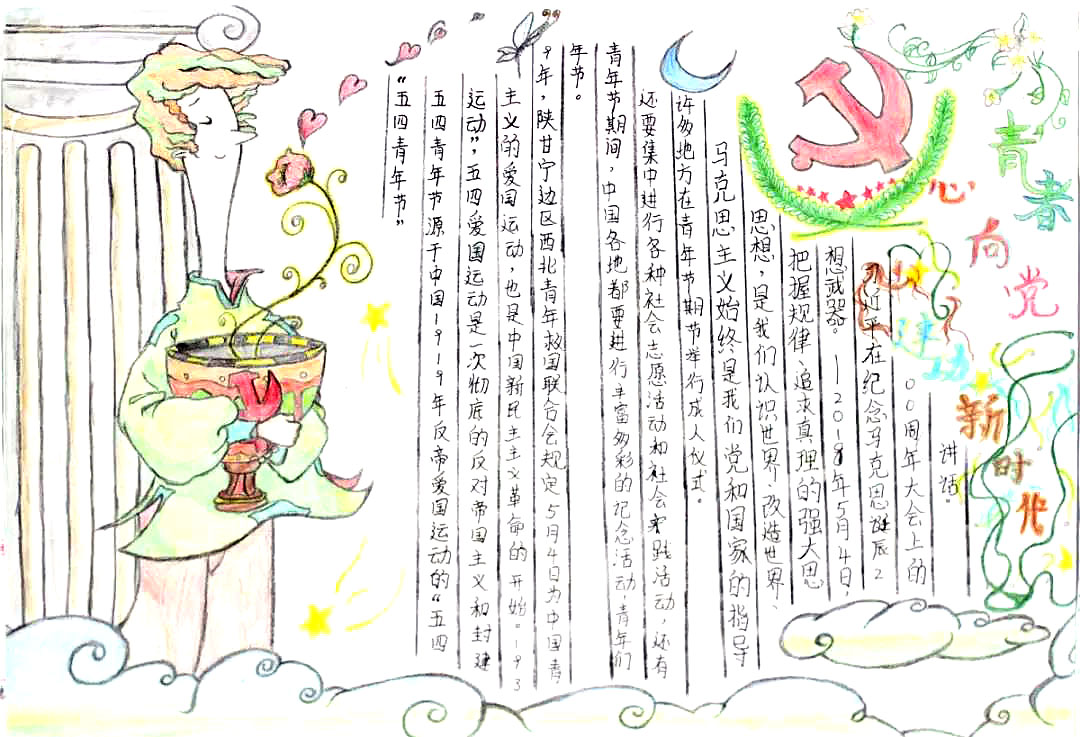 青
心向党
新时代
“五四青年节”
五四青年节源于中国1919年反帝爱国运动的“五四
运动”,五四爱国运动是一次彻底的反对帝国主义和封建
主义的爱国运动,也是中国新民主主义革命的开始。193
9年,陕甘宁边区西北青年救国联合会规定5月4日为中国青
年节。
青年节期间,中国各地都要进行丰富多彩的纪念活动,青年们
还要集中进行各种社会志愿活动和社会实践活动,还有
许多地方在青年节期节举行成人仪式。
马克思主义始终是我们党和国家的指导
思想,是我们认识世界、改造世界、
把握规律、追求真理的强大思
想武器。——2018年5月4日,
习近平在纪念马克思诞辰2
00周年大会上的
讲话。